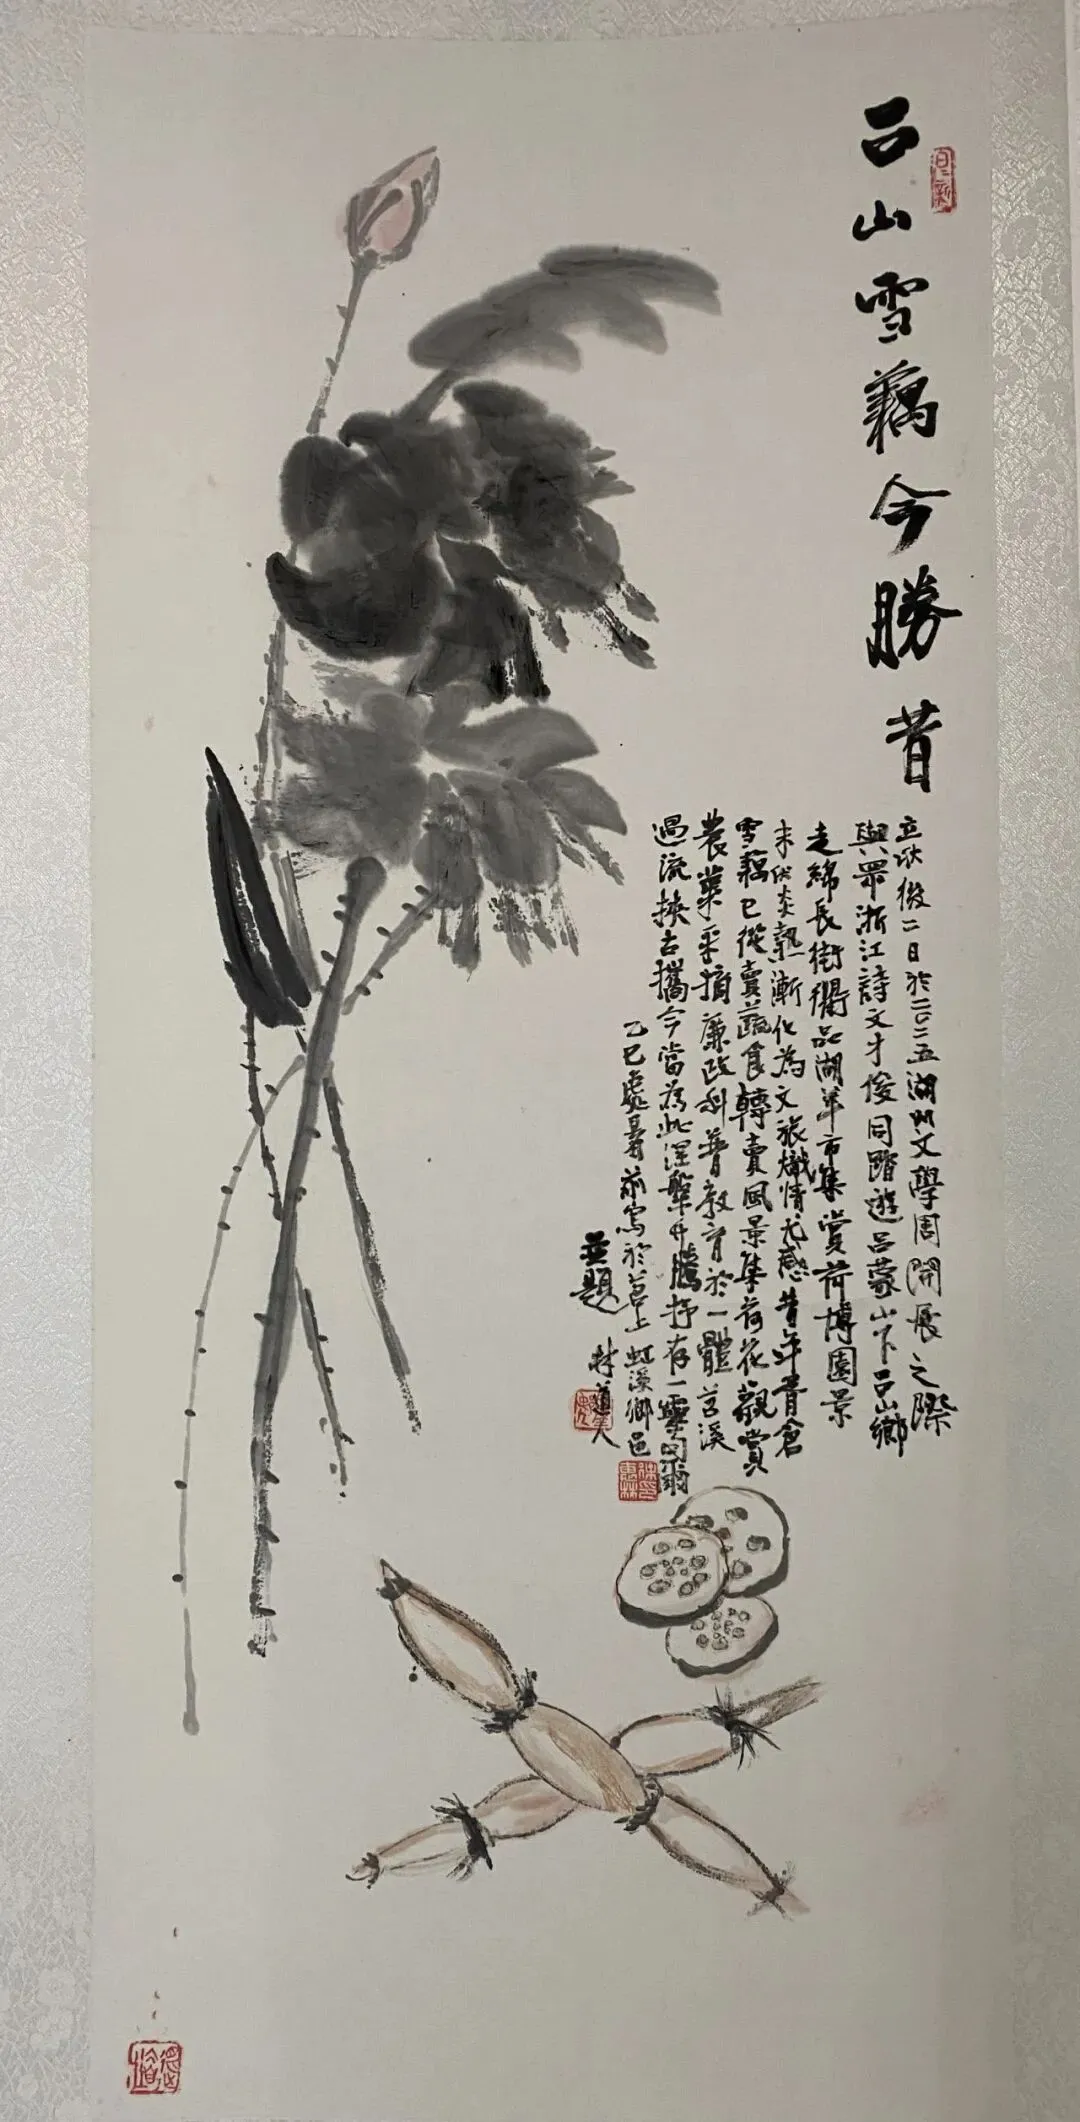 吕山雪藕今勝昔
立秋後二日於二〇二五湖州文學周開展之際
與眾浙江詩文才俊同踏遊吕蒙山下吕山鄉
走綿長街衢品湖羊市集賞荷博園景
末伏炎熱漸化為文旅熾情尤感昔年青倉
雪藕已從賣蔬食轉賣風景集荷花觀賞
農業采摘廉政科普教育於一體苕溪
過流挾古攜今當為此涅槃升騰抒存一靈
乙巳處暑前寫於苕上虹溪鄉邑
並題 林道人
日新